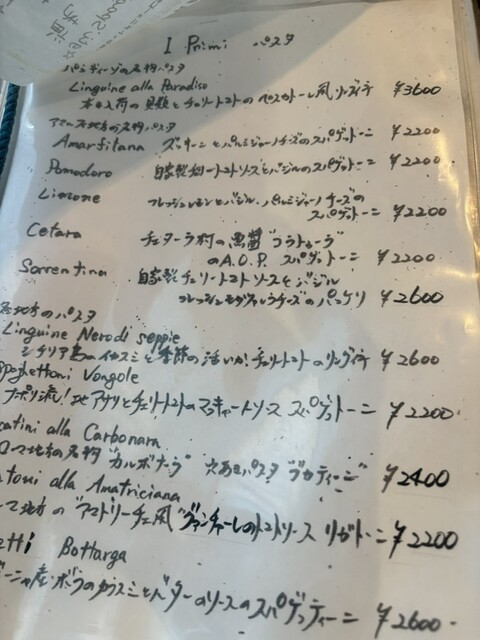 I Primi パスタ
パラディーゾの名物パスタ
Linguine alla Paradiso
本日入荷の貝類とチェリートマトのペスカトーレ風リングイネ ¥3600
アマルフィ地方の名物パスタ
Amarfitana ズッキーニとパルミジャーノチーズのスパゲットーニ ¥2200
Pomodoro 自家製チェリートマトソースとバジルのスパゲットーニ ¥2200
Limone フレッシュレモンとバジル、パルミジャーノチーズの
スパゲットーニ ¥2200
Cetara チェターラ村の魚醤"コラトゥーラ"
のA.O.P. スパゲットーニ ¥2200
Sorrentina 自家製チェリートマトソースとバジル
フレッシュモッツァレラチーズのパッケリ ¥2600
地方のパスタ
Linguine Nero di seppie
シチリア島のイカスミと季節の活いか!チェリートマトのリングイネ ¥2600
Spaghettoni Vongole
ナポリ流!地アサリとチェリートマトのマッキャートソース スパゲットーニ ¥2200
catini alla Carbonara
ローマ地方の名物"カルボナーラ" 穴あきパスタ"ブカティーニ" ¥2400
atoni alla Amatriciana
ーマ地方の"アマトリーチェ風"グアンチャーレのトマトソース リガトーニ ¥2200
etti Bottarga
ーニャ産・ボラのカラスミとバターのソースのスパゲッティーニ ¥2600